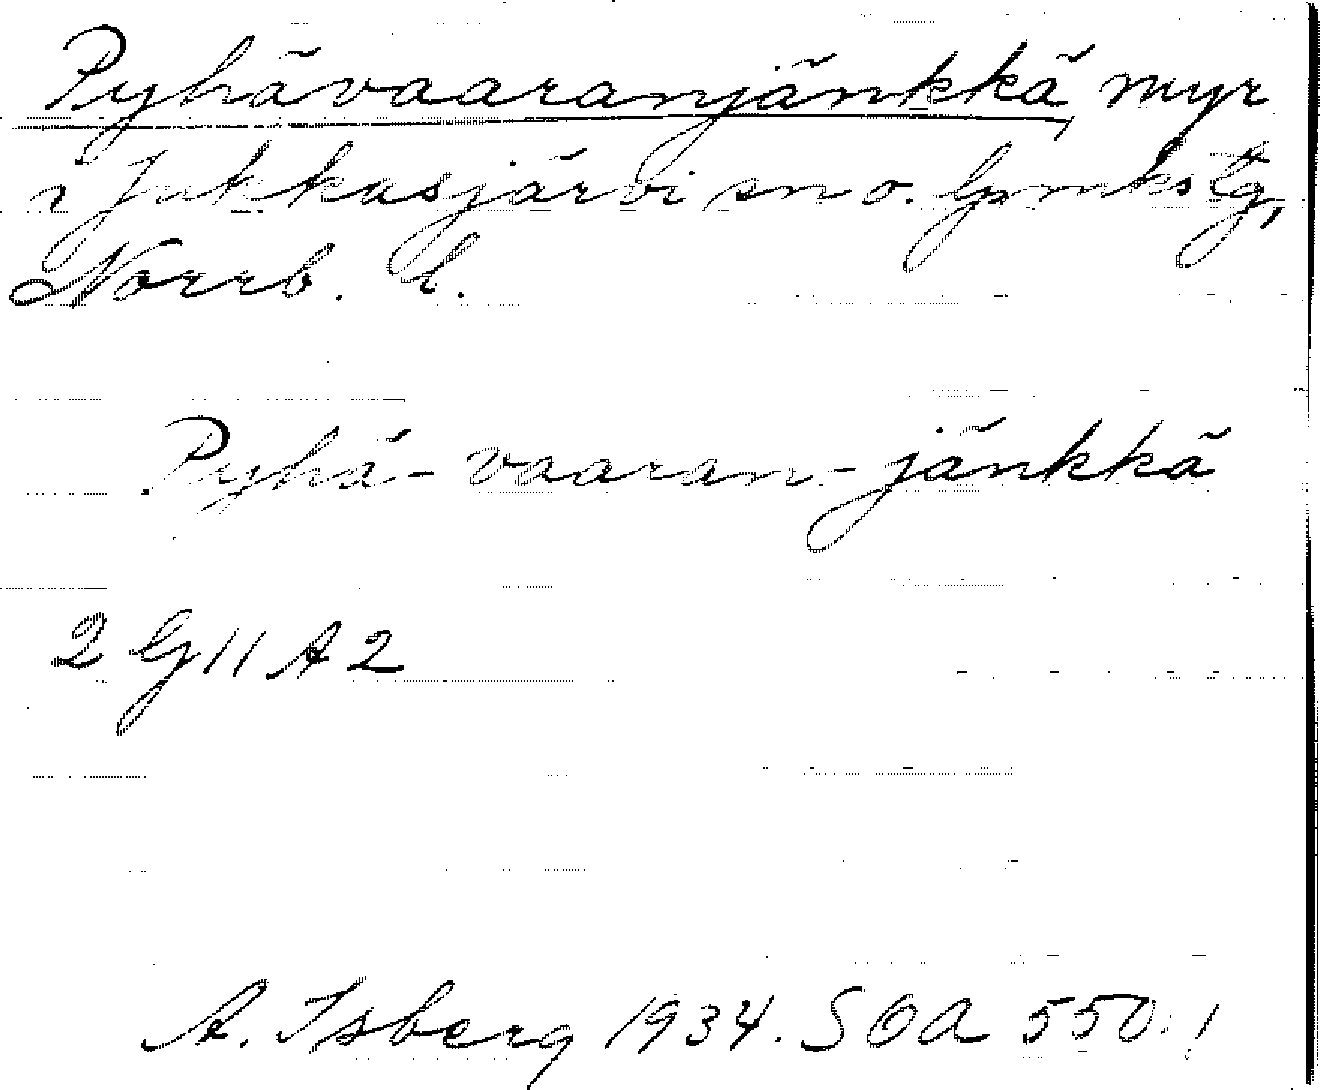 Pyhävaaranjänkkä, myr
i Jukkasjärvi sn o. lpmkstg,
Norrb. l.
Pyhä-vaaran-jänkkä
2 G 11 A 2
A. Isberg 1934. SOA 550:1